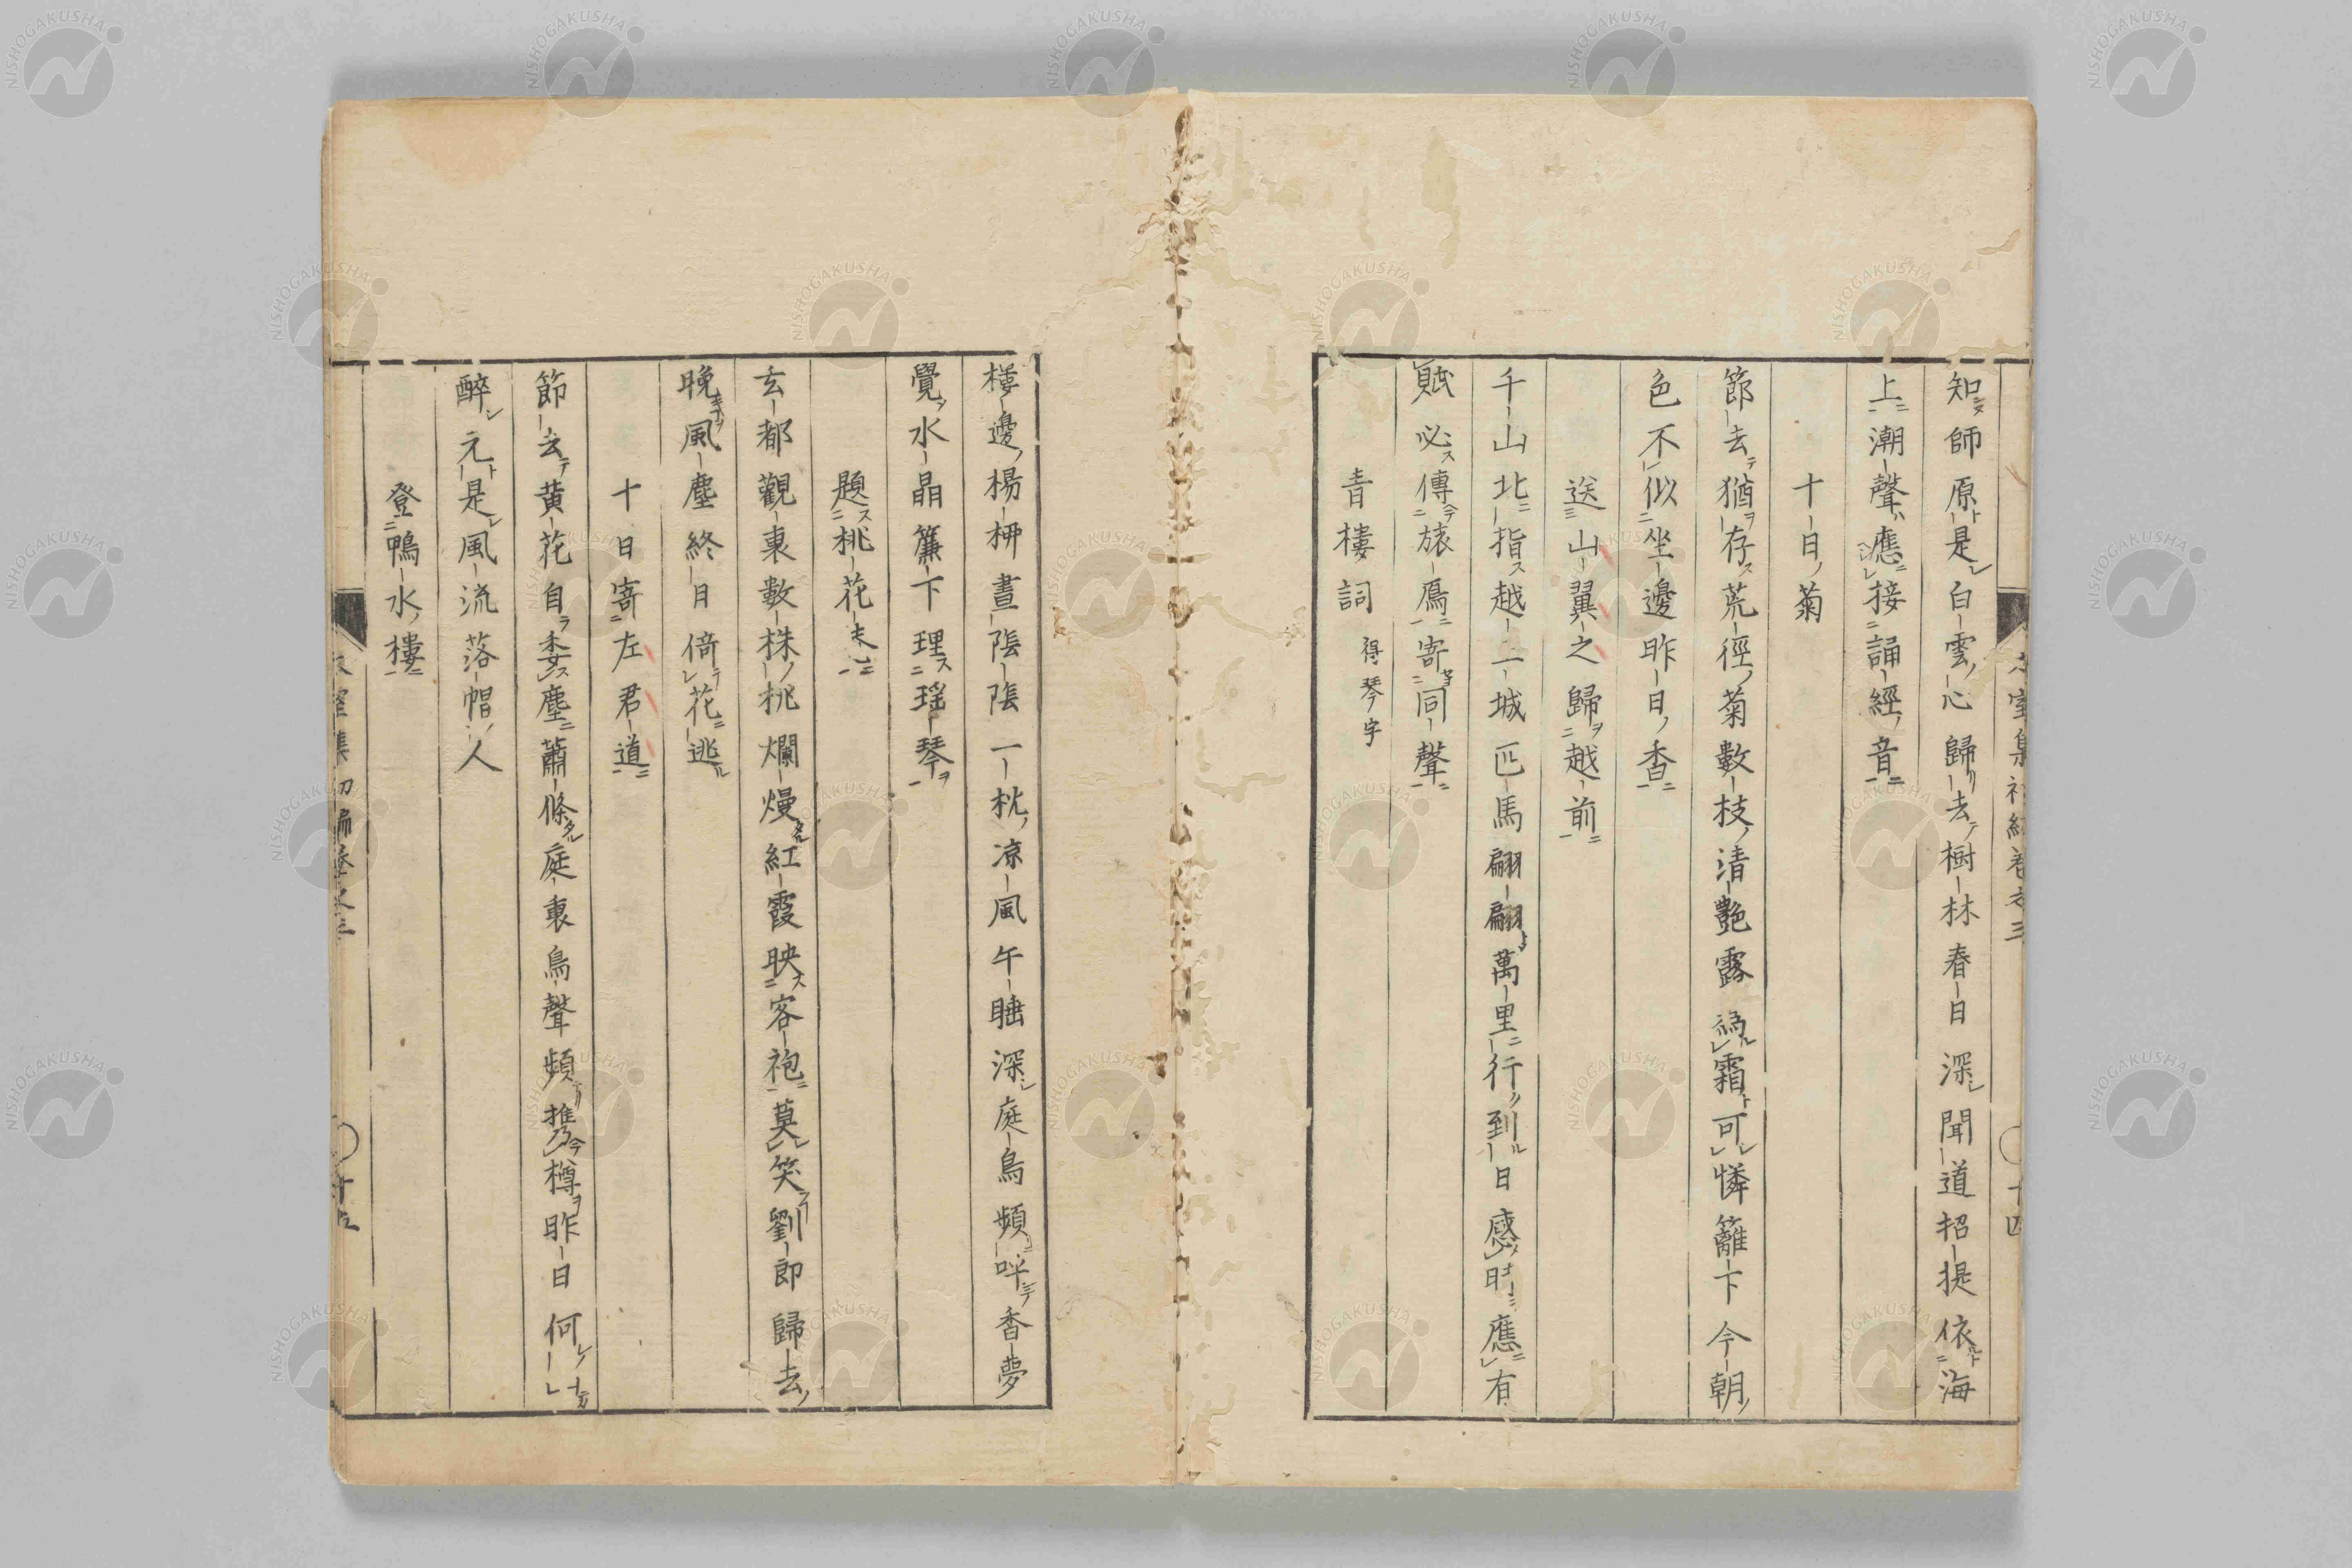 知師原是白雲心歸去樹林春日深聞道招提依海
上潮聲應接誦經音
十日菊
節去猶存荒徑菊數枝清艷露為霜可憐籬下今朝
色不似坐邊昨日香
送山翼之歸越前
千山北指越二城匹馬翩翩萬里行到日感時應有
賦必傳旅鴈寄同聲
青樓詞 得琴字
樓邊楊柳晝陰陰一枕凉風午睡深庭鳥頻呼香夢
覺水晶簾下理瑶琴
題桃花
玄都觀裏數株桃爛熳紅霞映客袍莫笑劉郎歸去
晚風塵終日倚花逃
十日寄左君道
節去黄花自委塵蕭條庭裏鳥聲頻携樽昨日何
醉元是風流落帽人
登鴨水樓
NISHOGAKUSHA